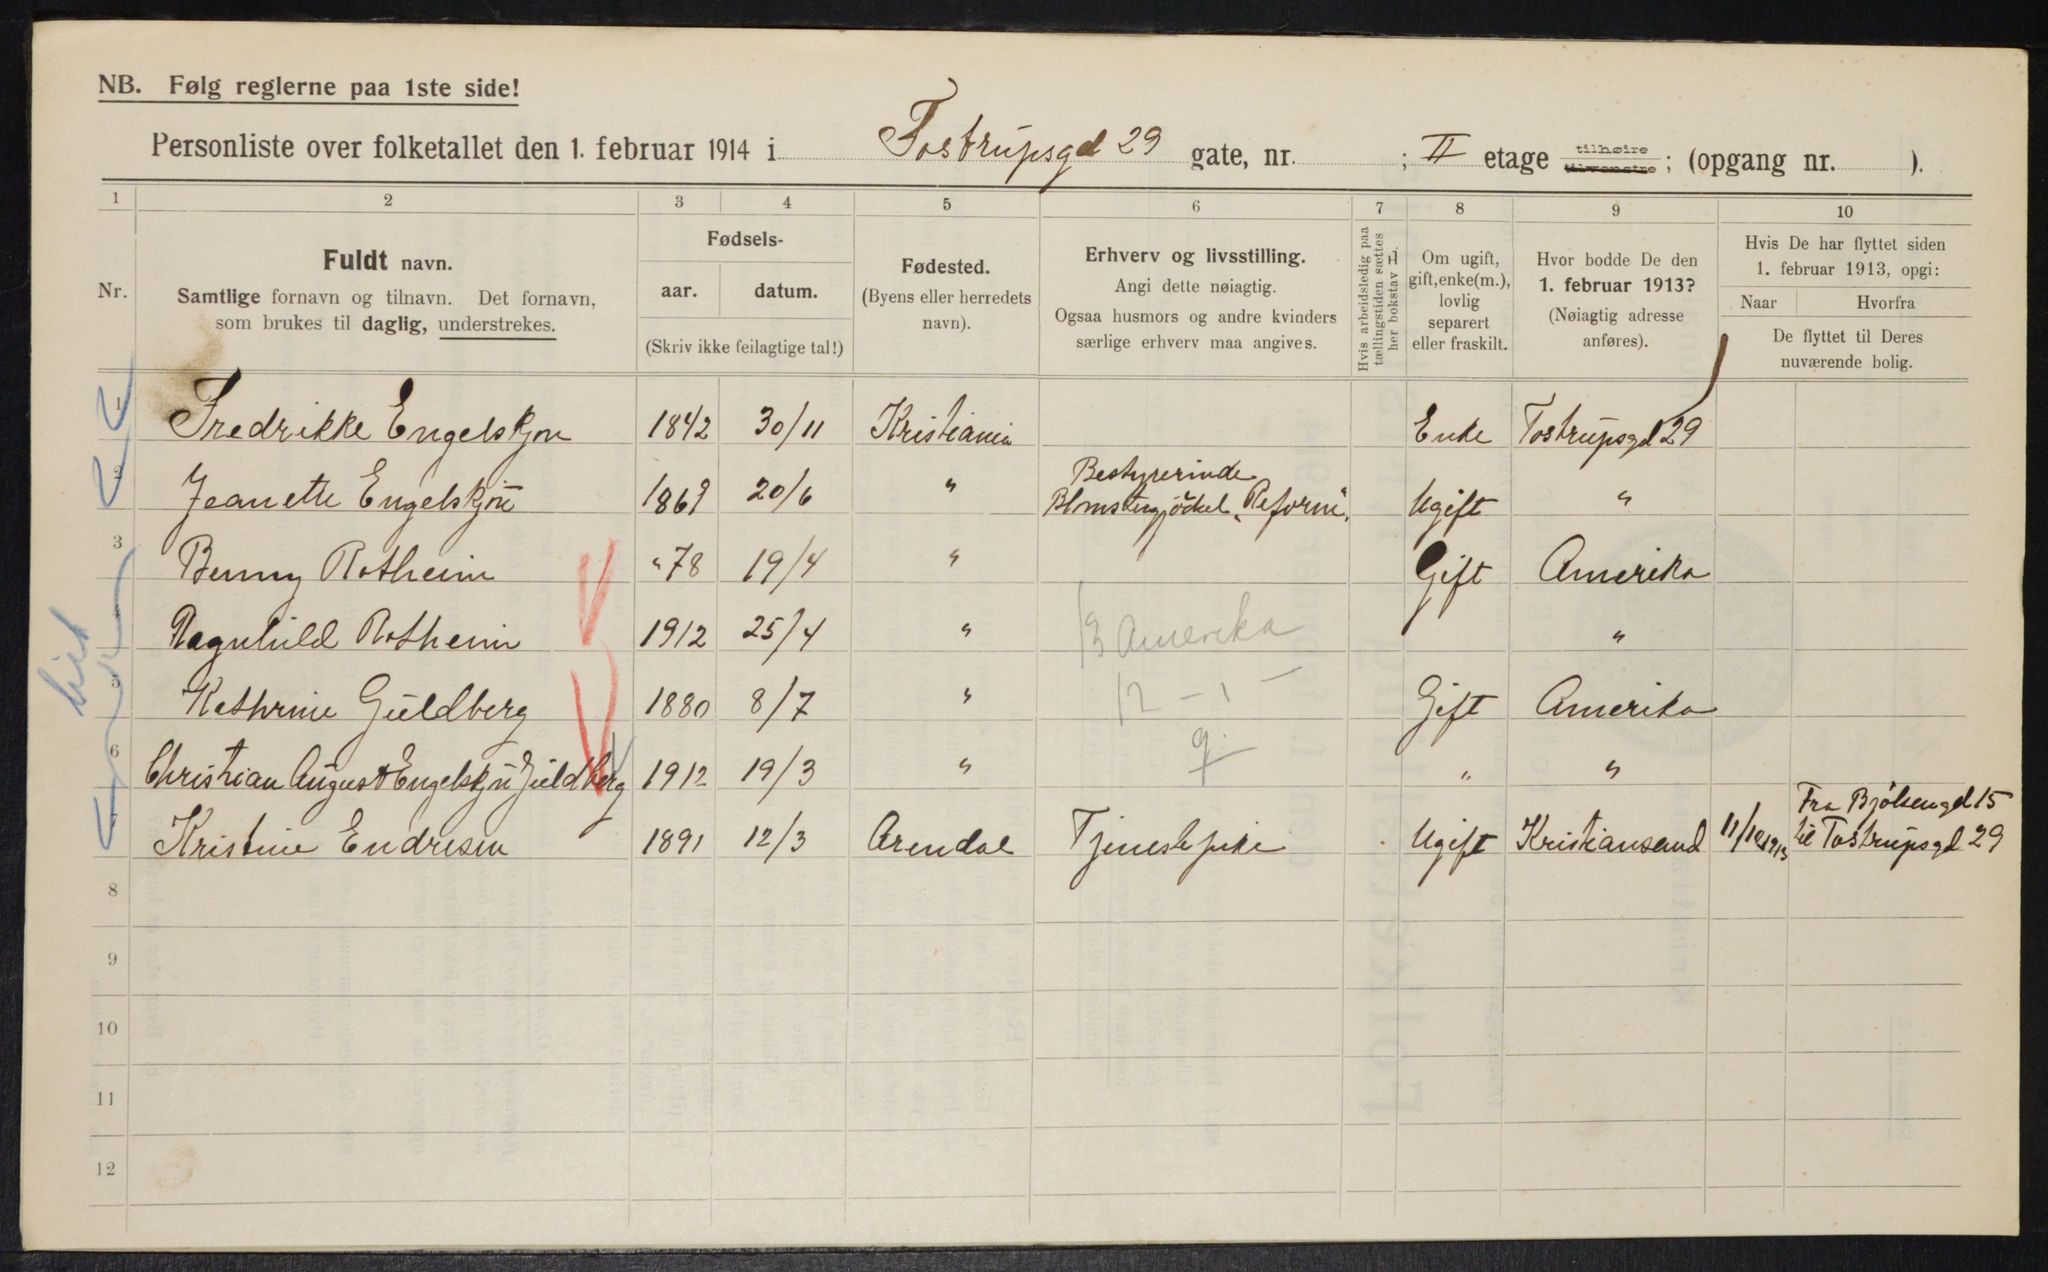 NB. Følg reglerne paa 1ste side!
Personliste over folketallet den 1. februar 1914 i Tostrupsgd 29 gate, nr. ; II etage tilhøire tilvenstre; (opgang nr. ).
1 2 3 4 5 6 7 8 9 10
Nr.
Fuldt navn.
Samtlige fornavn og tilnavn. Det fornavn,
som brukes til daglig, understrekes.
Fødsels-
aar. datum.
(Skriv ikke feilagtige tal!)
Fødested.
(Byens eller herredets
navn).
Erhverv og livsstilling.
Angi dette nøiagtig.
Ogsaa husmors og andre kvinders
særlige erhverv maa angives.
Hvis arbeidsledig paa
tællingstiden sættes
her bokstav L.
Om ugift,
gift, enke(m.),
lovlig
separert
eller fraskilt.
Hvor bodde De den
1. februar 1913?
(Nøiagtig adresse
anføres).
Hvis De har flyttet siden
1. februar 1913, opgi:
Naar Hvorfra
De flyttet til Deres
nuværende bolig.
1 Fredrikke Engelskjøn 1842 30/11 Kristiania Enke Tostrupsgd 29
2 Jeanette Engelskjøn 1869 20/6 " Bestyrerinde Ugift "
3 Benny Rotheim " 78 19/4 " Gift Amerika
4 Ragnhild Rotheim 1912 25/4 " Amerika "
5 Kathrine Guldberg 1880 8/7 " 12 - 1 - Gift Amerika
6 Christian August Engelskjøn Guldberg 1912 19/3 " " "
Fra Bjølsengd 15
7 Kristine Endresen 1891 12/3 Arendal Tjenestepike Ugift Kristiansand 11/10 1913 til Tostrupsgd 29
8
9
10
11
12